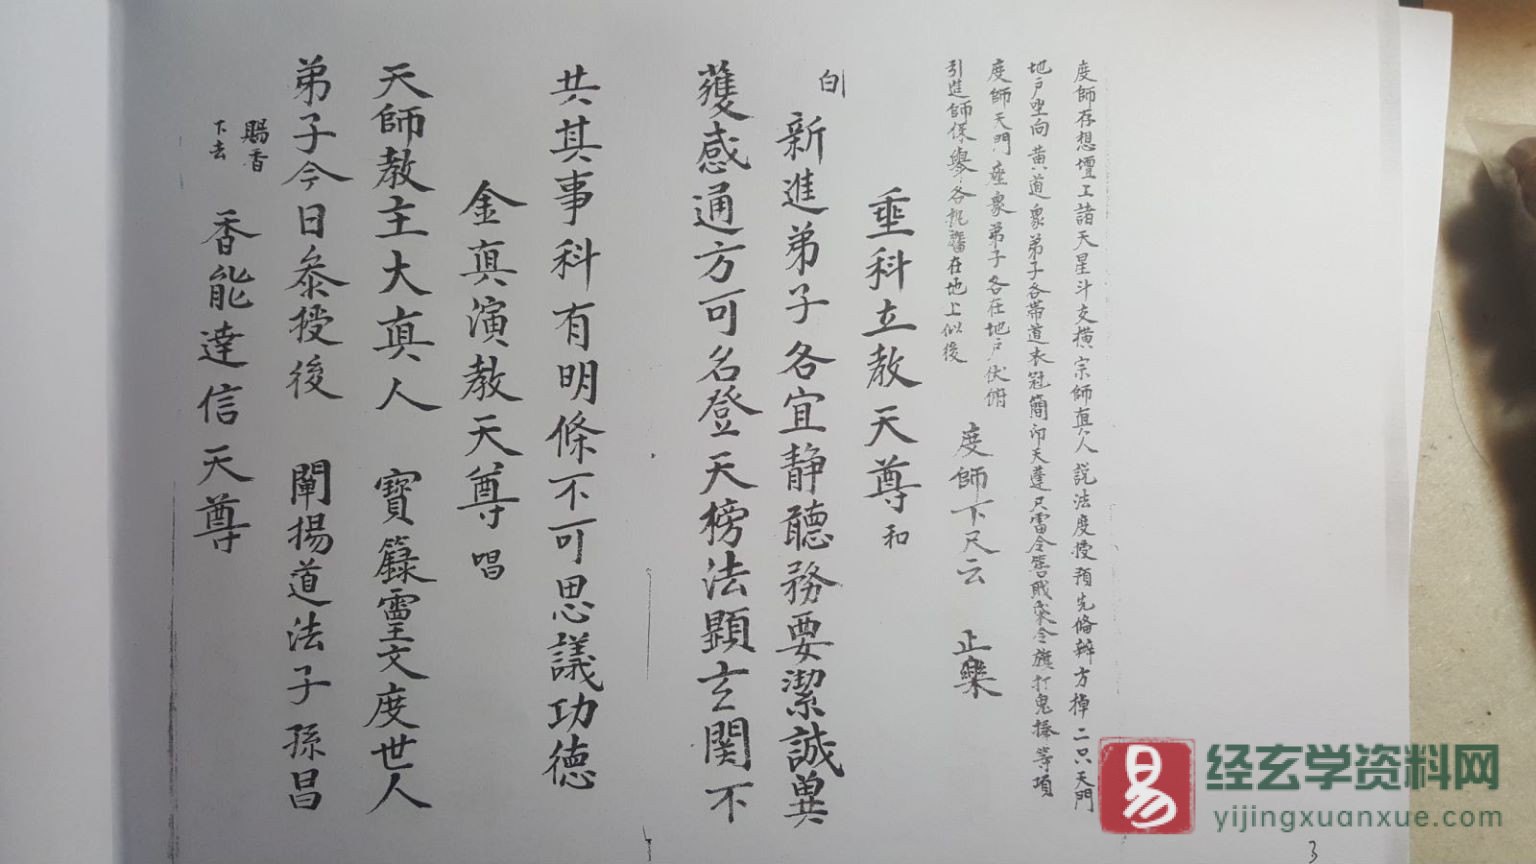 度師存想壇上諸天星斗交橫宗師真人說法度授預先俻辦方棹二只天門
地戶坐向黄道衆弟子各帶道衣冠簡印天蓬尺雷令 令旗打鬼棒等項
度師天門 座衆弟子各在地戶伏俯
引進師保舉各執 在地上似後
度師下尺云 止樂
垂科立教天尊 和
白
新進弟子各宜静聽務要潔誠兾
蒦感通方可名登天榜法顕玄関不
共其事科有明條不可思議功德
金真演教天尊 唱
天師教主大真人 寳籙靈文度世人
弟子今日叅授後 闡揚道法子孫昌
賜香
下去
香能達信天尊
易
经玄学资料网
yijingxuanxue.com
3